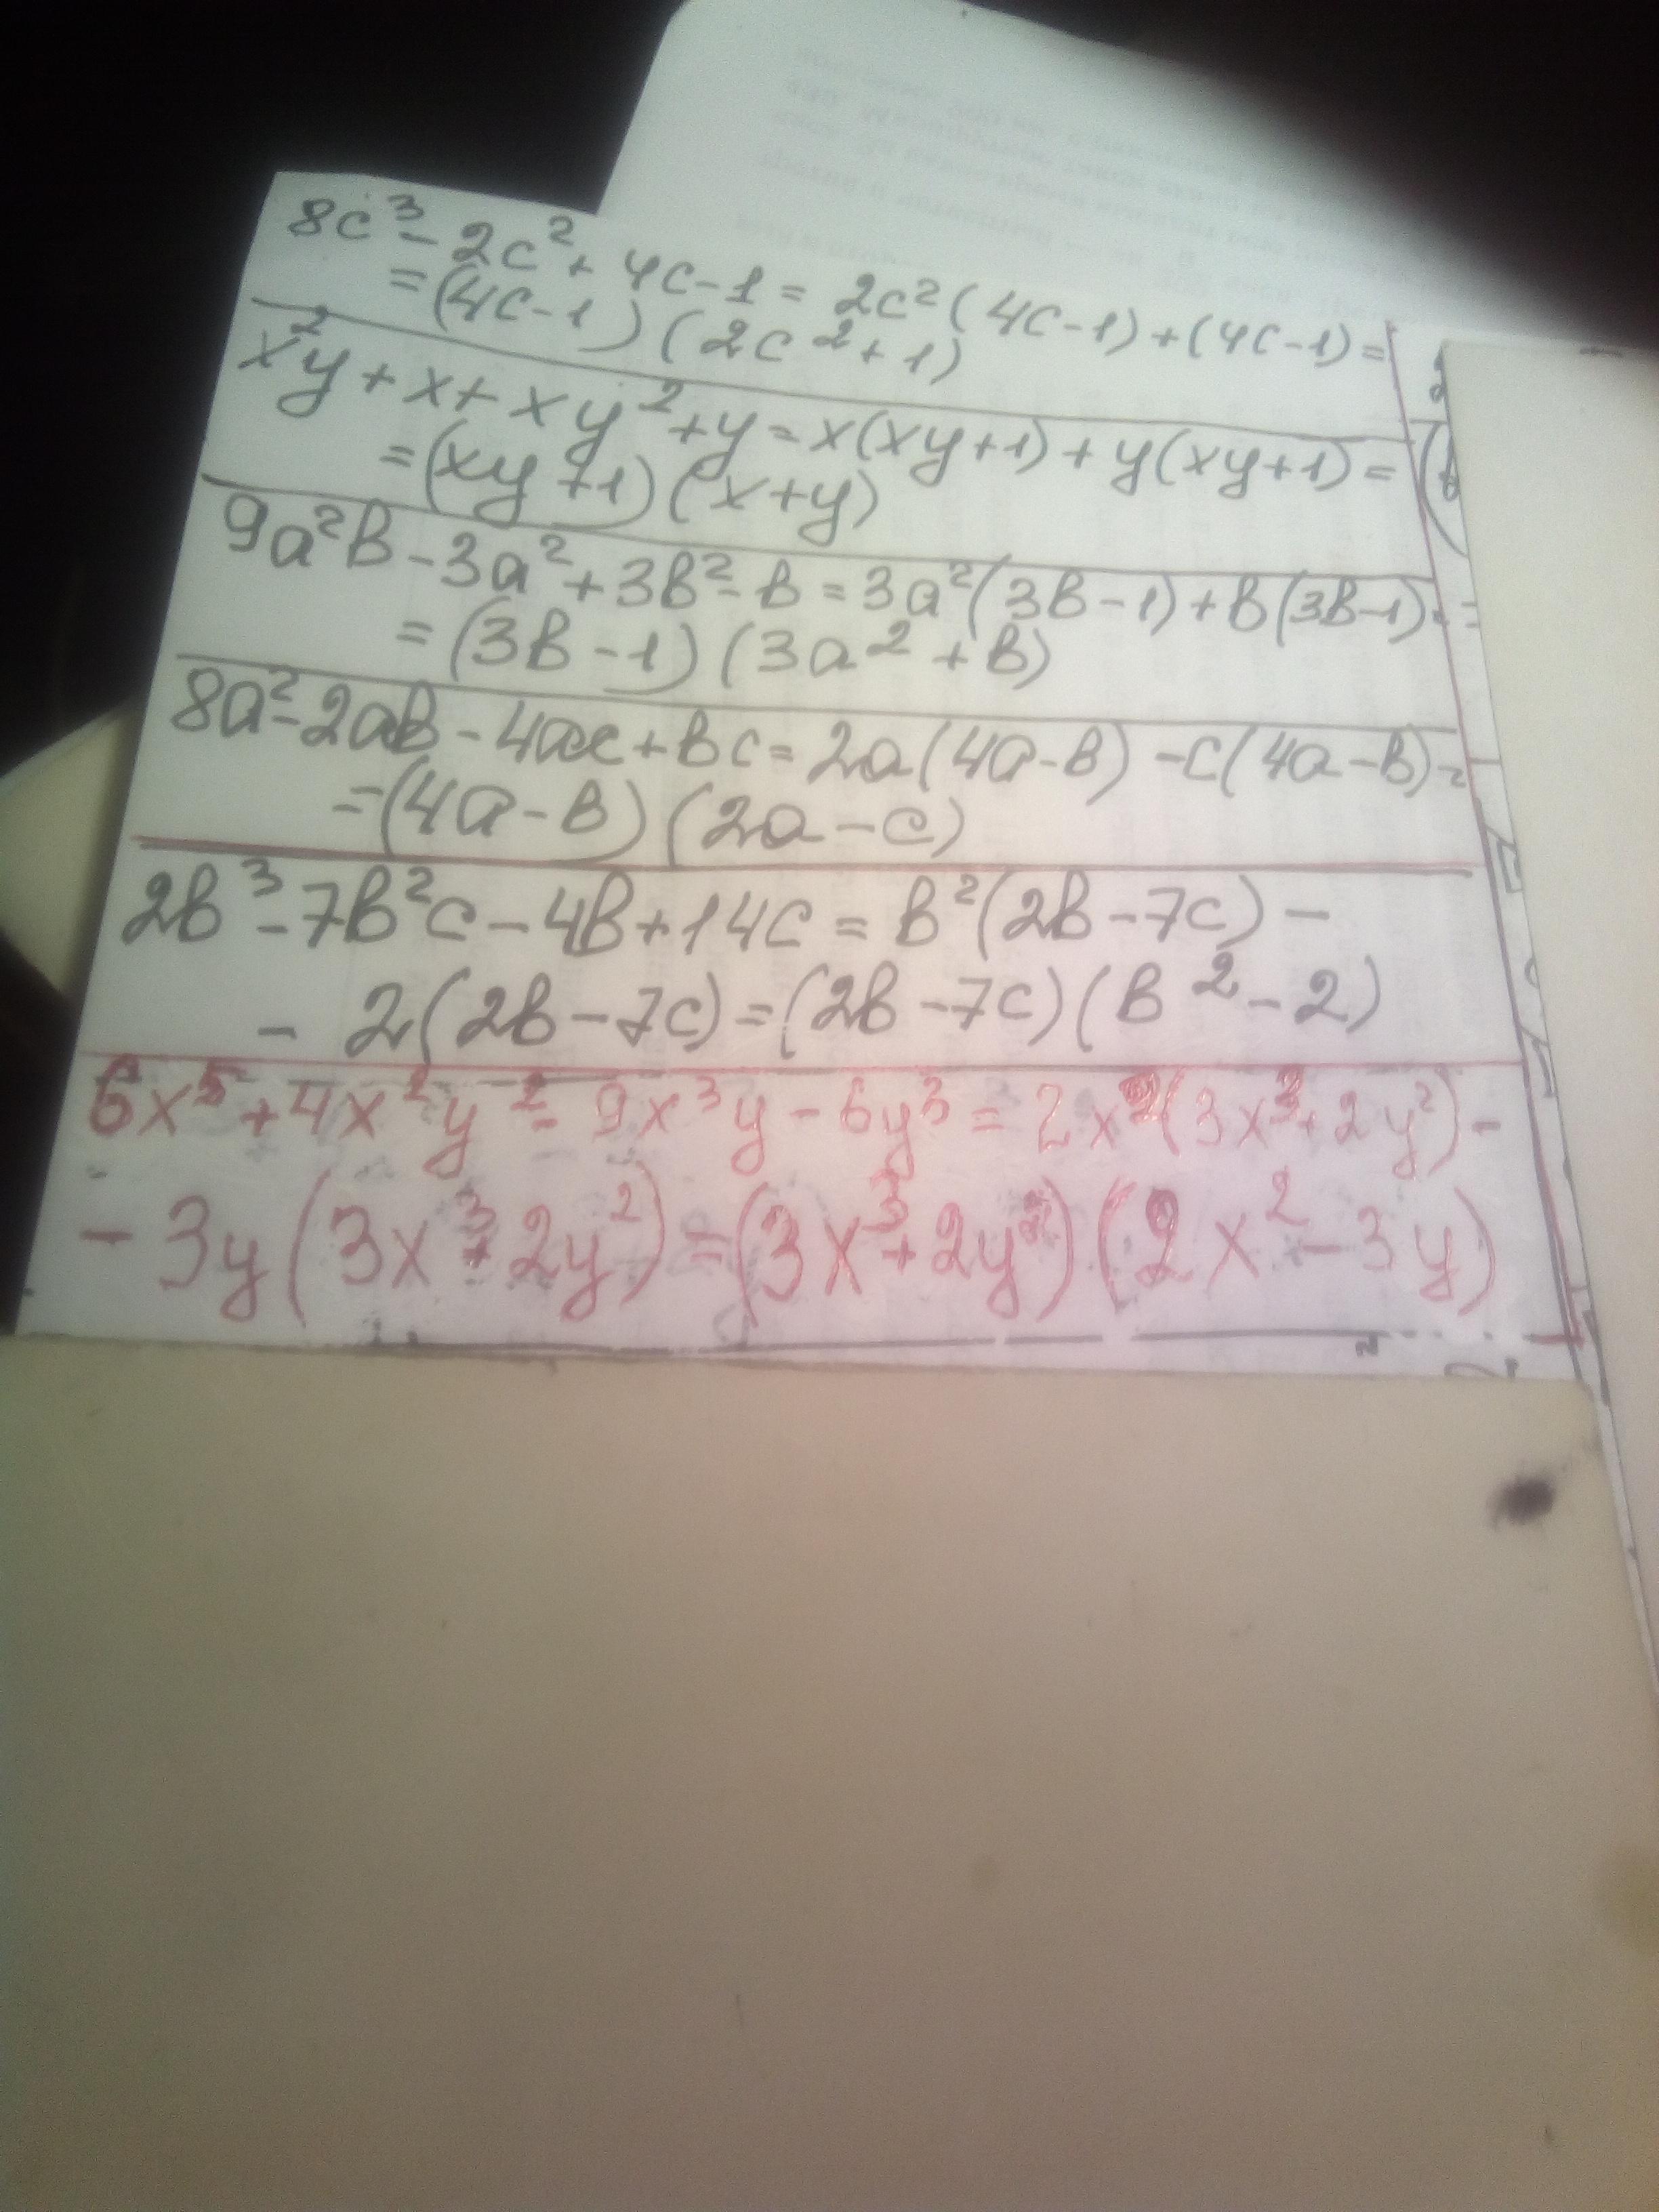 8c³ - 2c² + 4c - 1 = 2c²(4c - 1) + (4c - 1) =
= (4c - 1)(2c² + 1)
x²y + x + xy² + y = x(xy + 1) + y(xy + 1) =
= (xy + 1)(x + y)
9a²в - 3a² + 3в² - в = 3a²(3в - 1) + в(3в - 1) =
= (3в - 1)(3a² + в)
8a² - 2aв - 4ac + вc = 2a(4a - в) - c(4a - в) =
= (4a - в)(2a - c)
2в³ - 7в²c - 4в + 14c = в²(2в - 7c) -
- 2(2в - 7c) = (2в - 7c)(в² - 2)
6x⁵ + 4x²y² - 9x³y - 6y³ = 2x²(3x³ + 2y²) -
- 3y(3x³ + 2y²) = (3x³ + 2y²)(2x² - 3y)